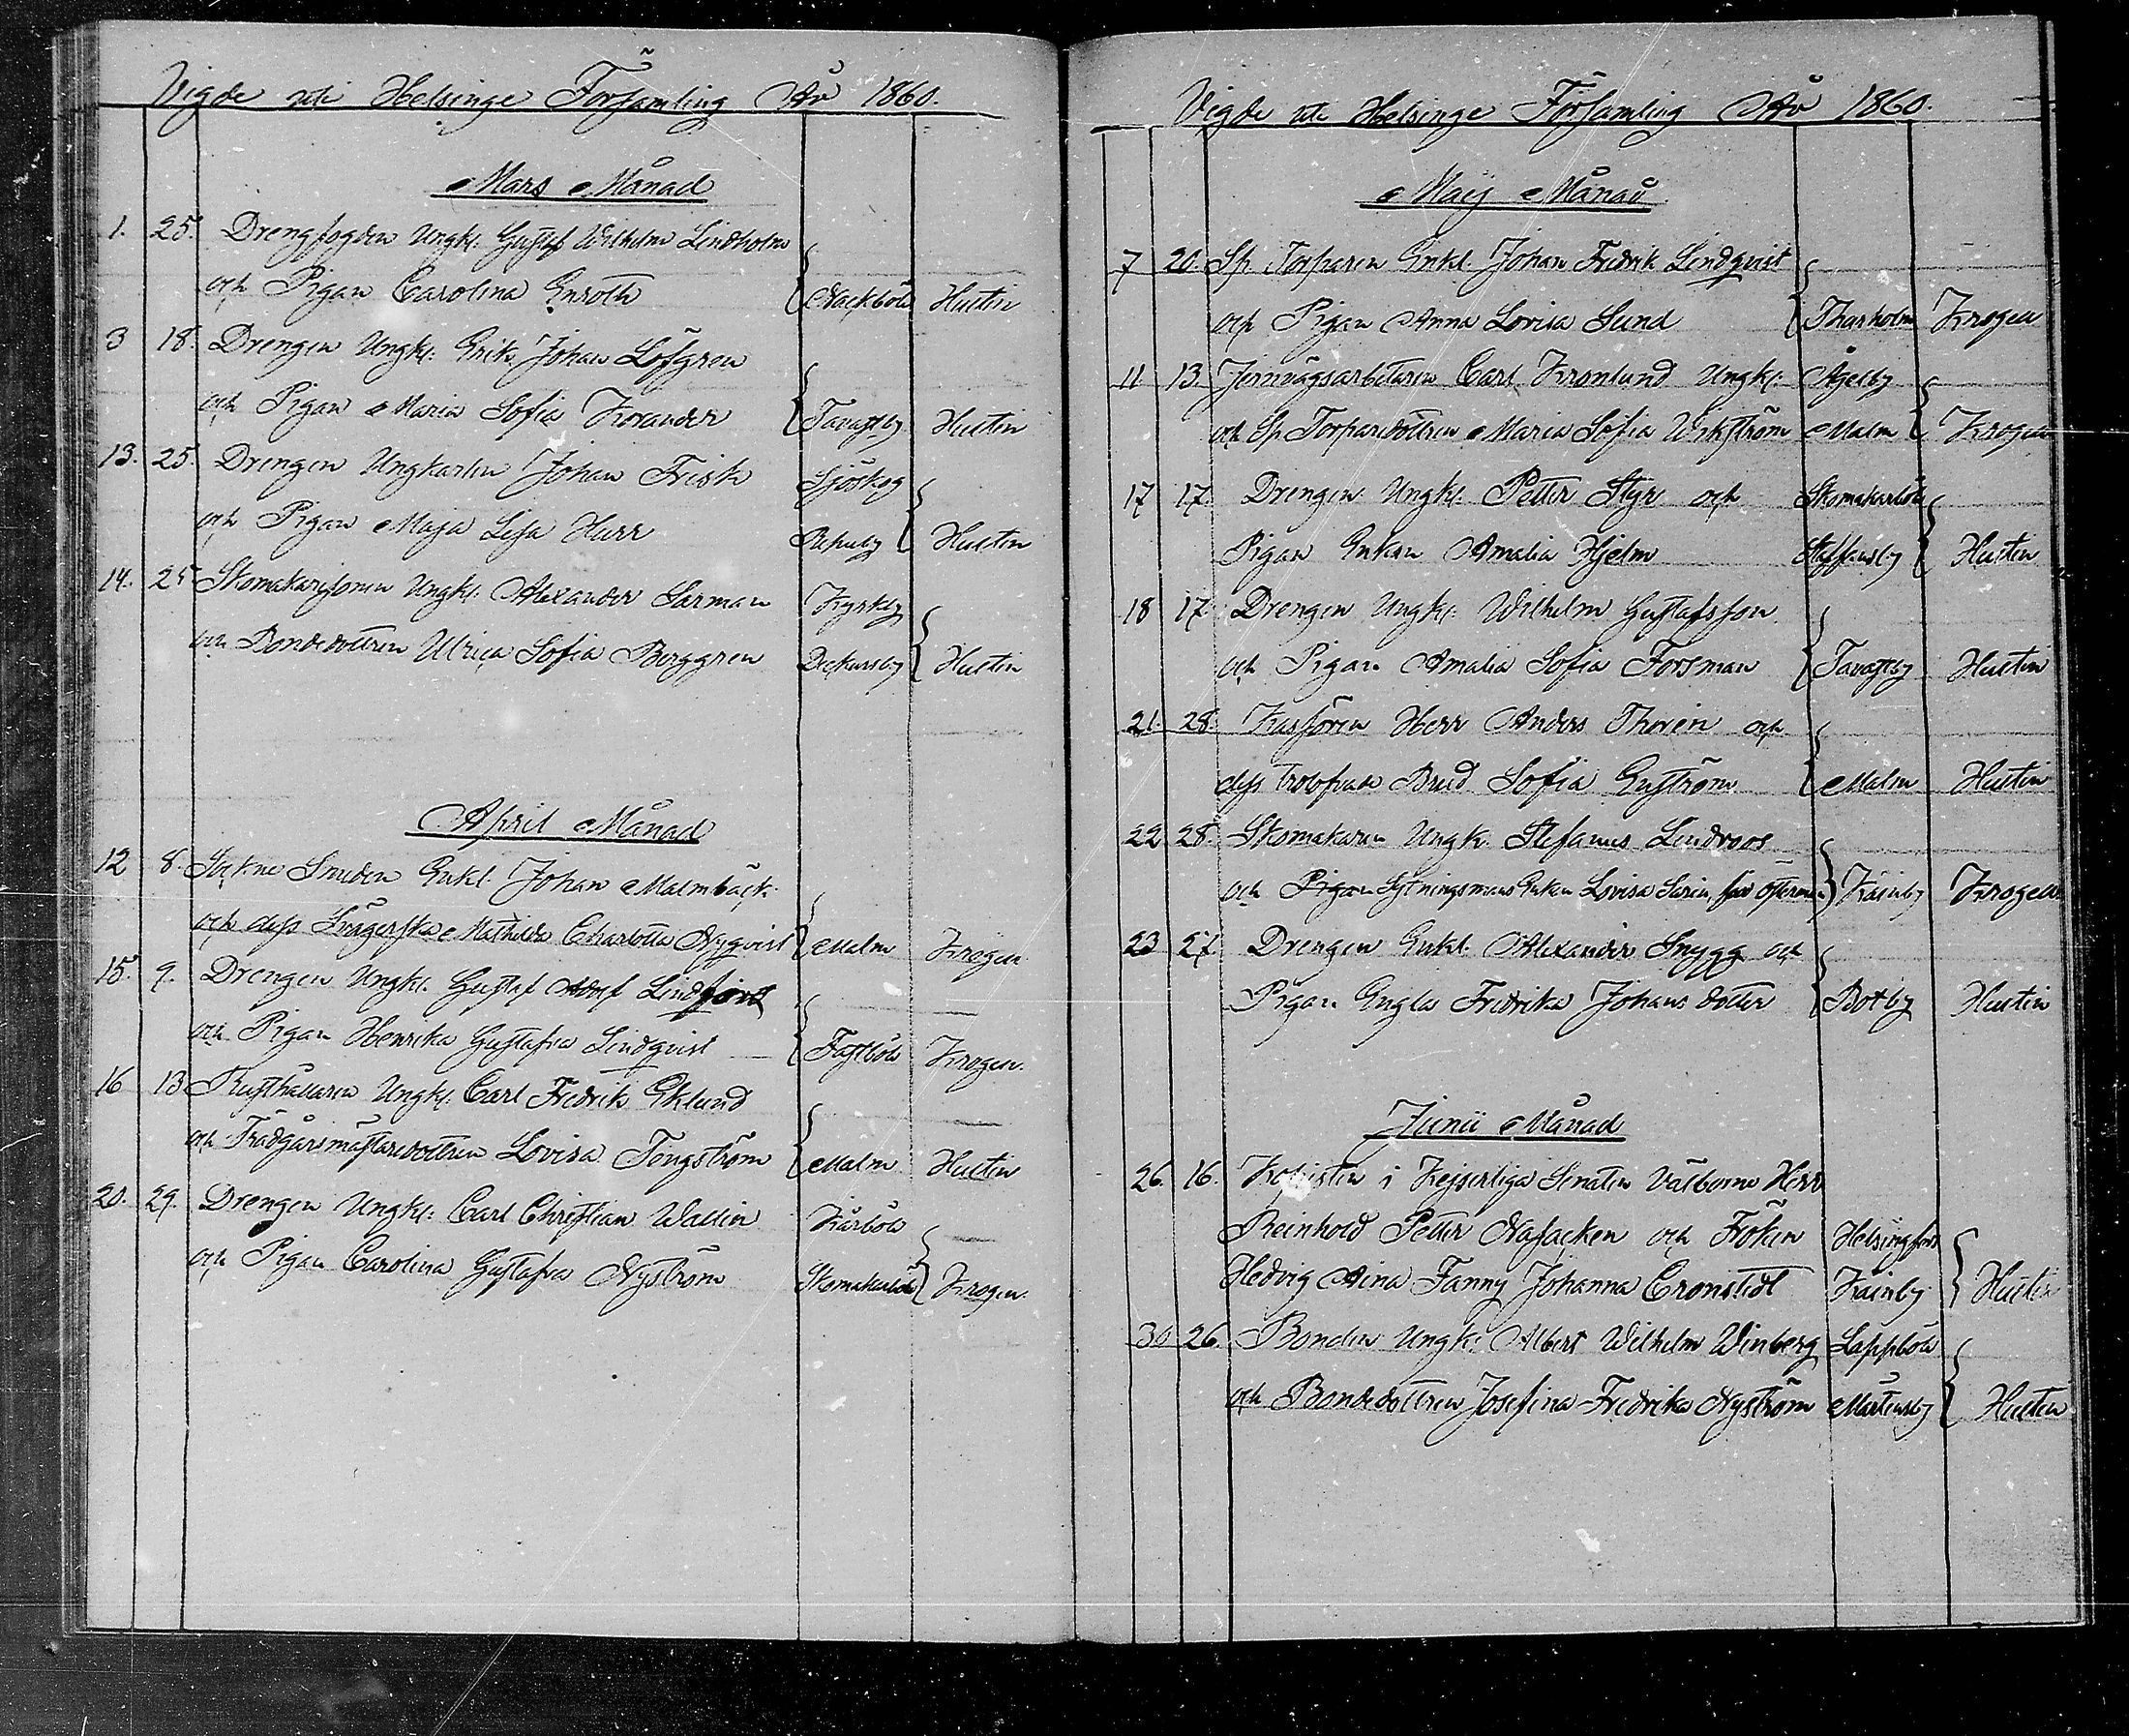 Vigde uti Helsinge Församling År 1860.
Mars Månad
1. 25. Drengfogden Ungk. Gustaf Wilhelm Lindholm
och Pigan Carolina Enroth Nackböle Hustin
3 18. Drengen Ungk. Erik Johan Löfgren
och Pigan Maria Sofia Korander Tavastby Hustin
13. 25. Drengen Ungkarlen Johan Frisk Sjöskog
och Pigan Maja Lisa Hurr Rekuby Hustin
14. 25 Skomakarsonen Ungk. Alexander Sarman Kyrkby
och Bondedottren Ulrica Sofia Berggren Dickursby Hustin
April Månad
12 8. Sockne Smeden Enkl. Johan Malmbäck
och dess Trägerska Mathilda Charlotta Nyqvist Malm Krogen
15. 9. Drengen Ungk. Gustaf Adolf Lindfors
och Pigan Henrika Gustafva Lindqvist Fastböle Krogen.
16 13 Rusthållaren Ungk. Carl Fredrik Eklund
och Trädgårsmästaredottren Lovisa Tengström Malm Hustin
20. 29. Drengen Ungk. Carl Christian Wallin Kårböle
och Pigan Carolina Gustafva Nyström Skomakarböle Krogen.
Vigde uti Helsinge Församling År 1860.
Maij Månad
7 20. Sp. Torparen Enkl. Johan Fredrik Lindqvist
och Pigan Anna Lovisa Sund Tharholm Krogen
11 13. Jernvägsarbetaren Carl Kronlund Ungk. Åggelby
och Sp Torparedottren Maria Sofia Wikström Malm Krogen
17 17. Drengen Ungk. Petter Styr och Skomakarböle
Pigan Enkan Amalia Hjelm Staffansby Hustin
18 17. Drengen Ungk. Wilhelm Gustafsson
och Pigan Amalia Sofia Forsman Tavastby Hustin
21. 28. Kassören Herr Anders Thorén och
dess trolofvade Brud Sofia Enström Malm Hustin
22 28. Skomakaren Ungk. Stefanus Lindroos
och Pigan Sytningsmans Enkan Lovisa Sarin, född Österman Kainby Krogen
23 27 Drengen Enkl. Alexander Snygg och
Pigan Engla Fredrika Johans dotter Botby Hustin
Junii Månad
26. 16. Kopisten i Kejserliga Senaten Välborne Herr
Reinhold Petter Nasacken och Fröken Helsingfors
Hedvig Aina Fanny Johanna Cronstedt Kainby Hustin
30 26. Bonden Ungk. Albert Wilhelm Winberg Lappböle
och Bondedottren Josefina Fredrika Nyström Mårtensby Hustin